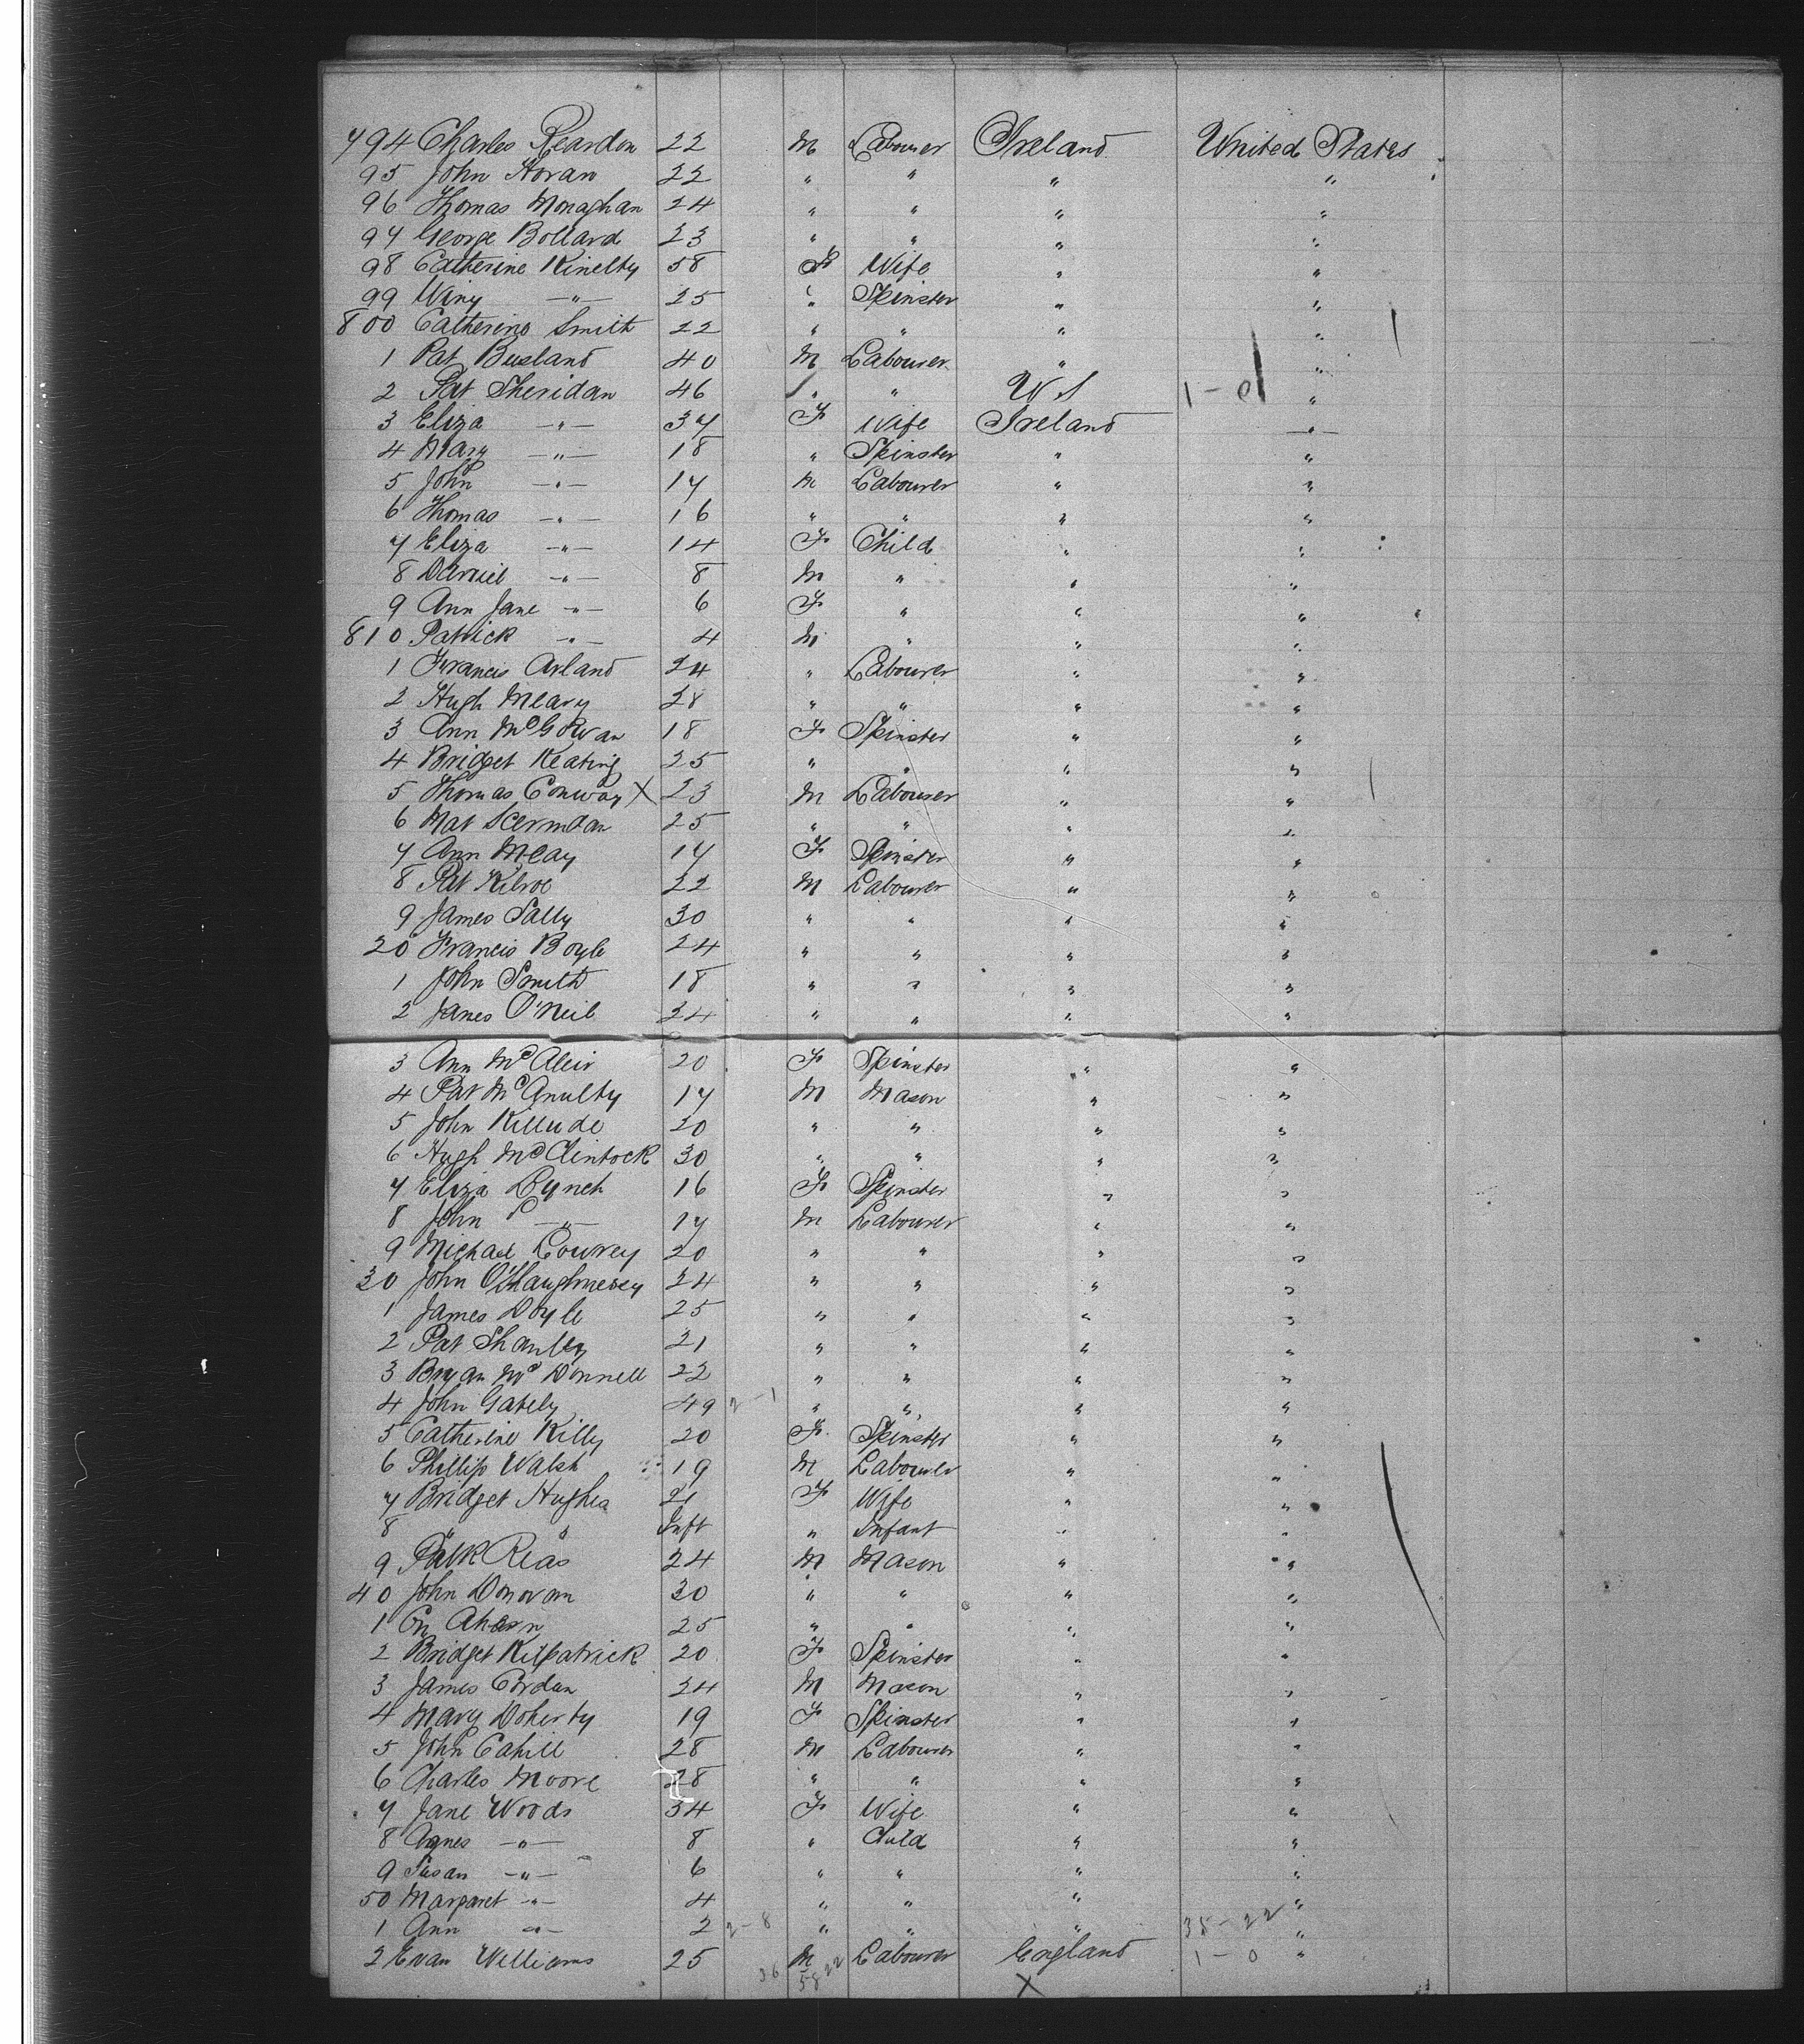 794 Charles Reardon 22 M Labourer Ireland United States
95 John Horan 22 " " " "
96 Thomas Monaghan 24 " " " "
97 George Bollard 23 " " " "
98 Catherine Kinelty 58 F Wife " "
99 Winy —"— 25 " Spinster " "
800 Catherine Smith 22 " " " "
1 Pat Busland 40 M Labourer " "
2 Pat Sheridan 46 " " U S 1 - 0 "
3 Eliza —"— 37 F Wife Ireland —"—
4 Mary —"— 18 " Spinster " "
5 John —"— 17 M Labourer " "
6 Thomas —"— 16 " " " "
7 Eliza —"— 14 F Child " "
8 Daniel —"— 8 M " " "
9 Ann Jane —"— 6 F " " "
810 Patrick —"— 4 M " " "
1 Francis Arland 24 " Labourer " "
2 Hugh Meary 28 " " " "
3 Ann McGowan 18 F Spinster " "
4 Bridget Keating 25 " " " "
5 Thomas Conway X 23 M Labourer " "
6 Mat 25 " " " "
7 Ann 17 F Spinster " "
8 Pat Kilroe 22 M Labourer " "
9 James Lally 30 " " " "
20 Francis Boyle 24 " " " "
1 John Smith 18 " " " "
2 James O'Neil 24 " " " "
3 Ann McAleir 20 F Spinster " "
4 Pat McAnulty 17 M Mason " "
5 John Killude 20 " " " "
6 Hugh McClintock 30 " " " "
7 Eliza Lynch 16 F Spinster " "
8 John —"— 17 M Labourer " "
9 Michael Lowrey 20 " " " "
30 John O'Shaughnessy 24 " " " "
1 James Doyle 25 " " " "
2 Pat Shanley 21 " " " "
3 Bryan McDonnell 22 " " " "
4 John Gately 49 2 - 1 " " " "
5 Catherine Killy 20 F Spinster " "
6 Phillip Walsh 19 M Labourer " "
7 Bridget Hughes 21 F Wife " "
8 " " Inft " Infant " "
9 Patk Reas 24 M Mason " "
40 John Donovan 30 " " " "
1 Cn Ahearn 25 " " " "
2 Bridget Kilpatrick 20 F Spinster " "
3 James Cordan 24 M Mason " "
4 Mary Doherty 19 F Spinster " "
5 John Cahill 28 M Labourer " "
6 Charles Moore 28 " " " "
7 Jane Woods 34 F Wife " "
8 Agnes —"— 8 " Child " "
9 Susan —"— 6 " " " "
50 Margaret —"— 4 " " " "
1 Ann —"— 2 2 - 8 " " " 35 - 22 "
2 Evan Williams 25 M Labourer England 1 - 0 "
36 58 22 X